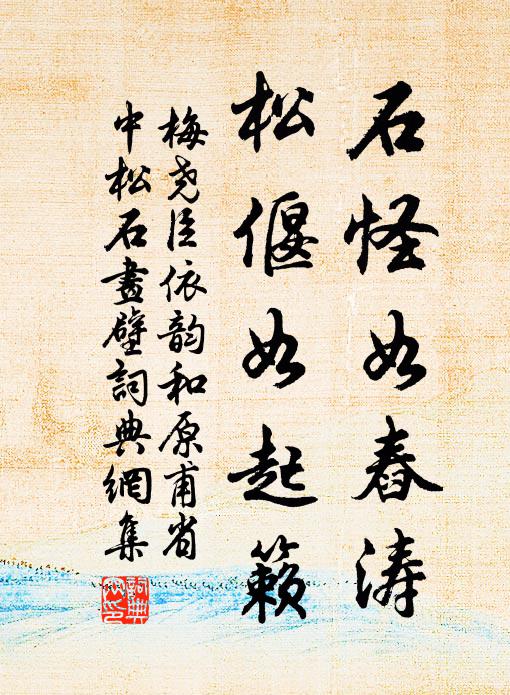 石怪如舂涛
松偃如起籁
梅尧臣依韵和原甫省
中松石畫壁詞典網集